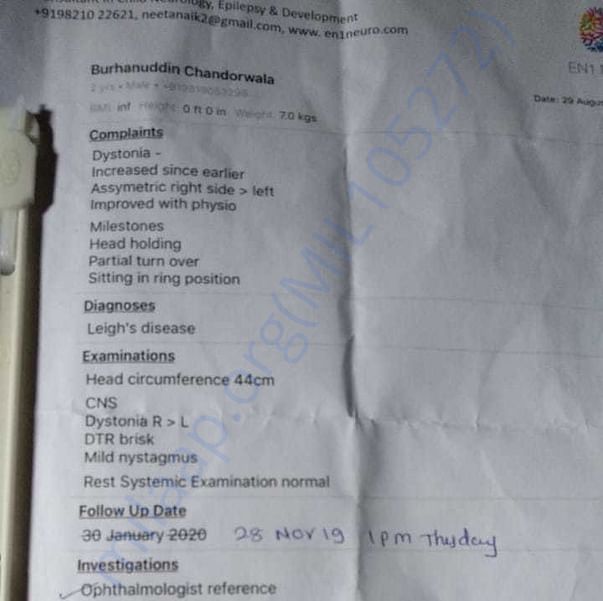 Neurology, Epilepsy & Development
+9198210 22621, neetanaik2@gmail.com, www. en1neuro.com
EN1
Date: 29
Burhanuddin Chandorwala
2 yrs • Male •
BMI: inf Height: 0 ft 0 in Weight: 7.0 kgs
Complaints
Dystonia -
Increased since earlier
Assymetric right side > left
Improved with physio
Milestones
Head holding
Partial turn over
Sitting in ring position
Diagnoses
Leigh's disease
Examinations
Head circumference 44cm
CNS
Dystonia R > L
DTR brisk
Mild nystagmus
Rest Systemic Examination normal
Follow Up Date
30 January 2020 28 NOV 19 1 PM
Investigations
Ophthalmologist reference
milaap.org(MIL105272)